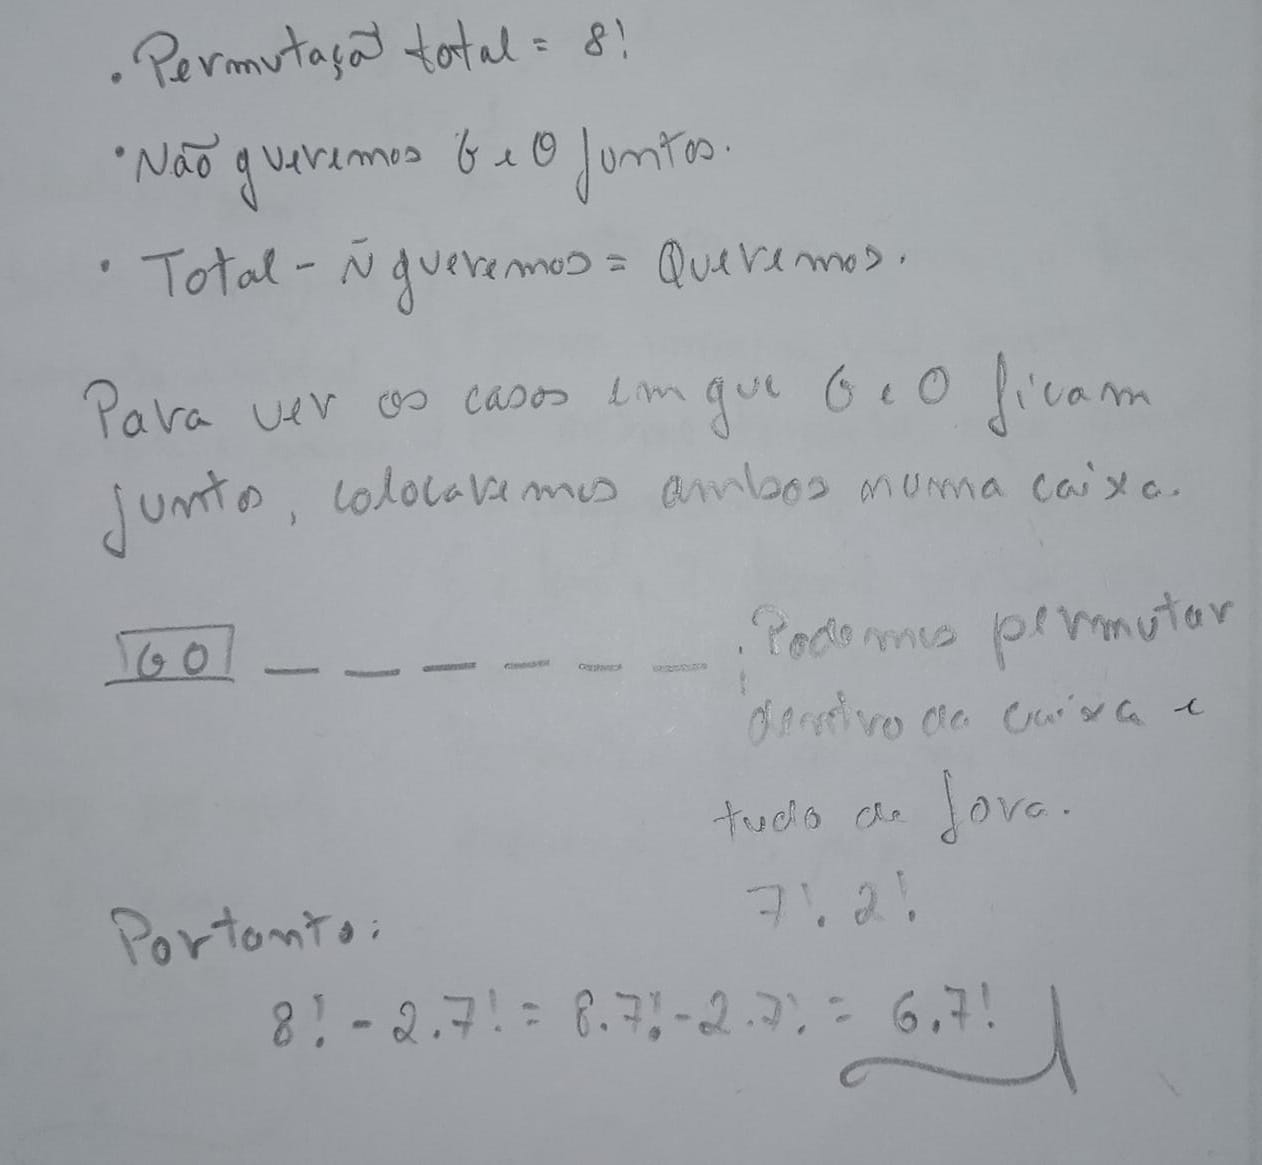 . Permutaçã total = 8!
• Não queremos G e O juntos.
• Total - Ñ queremos = Queremos.
Para ver os casos em que G e O ficam
juntos, colocaremos ambos numa caixa.
GO _ _ _ _ _ _
. Podemos permutar
dentro da caixa e
tudo de fora.
7!.2!
Portanto:
8! - 2.7! = 8.7! - 2.7! = 6.7!